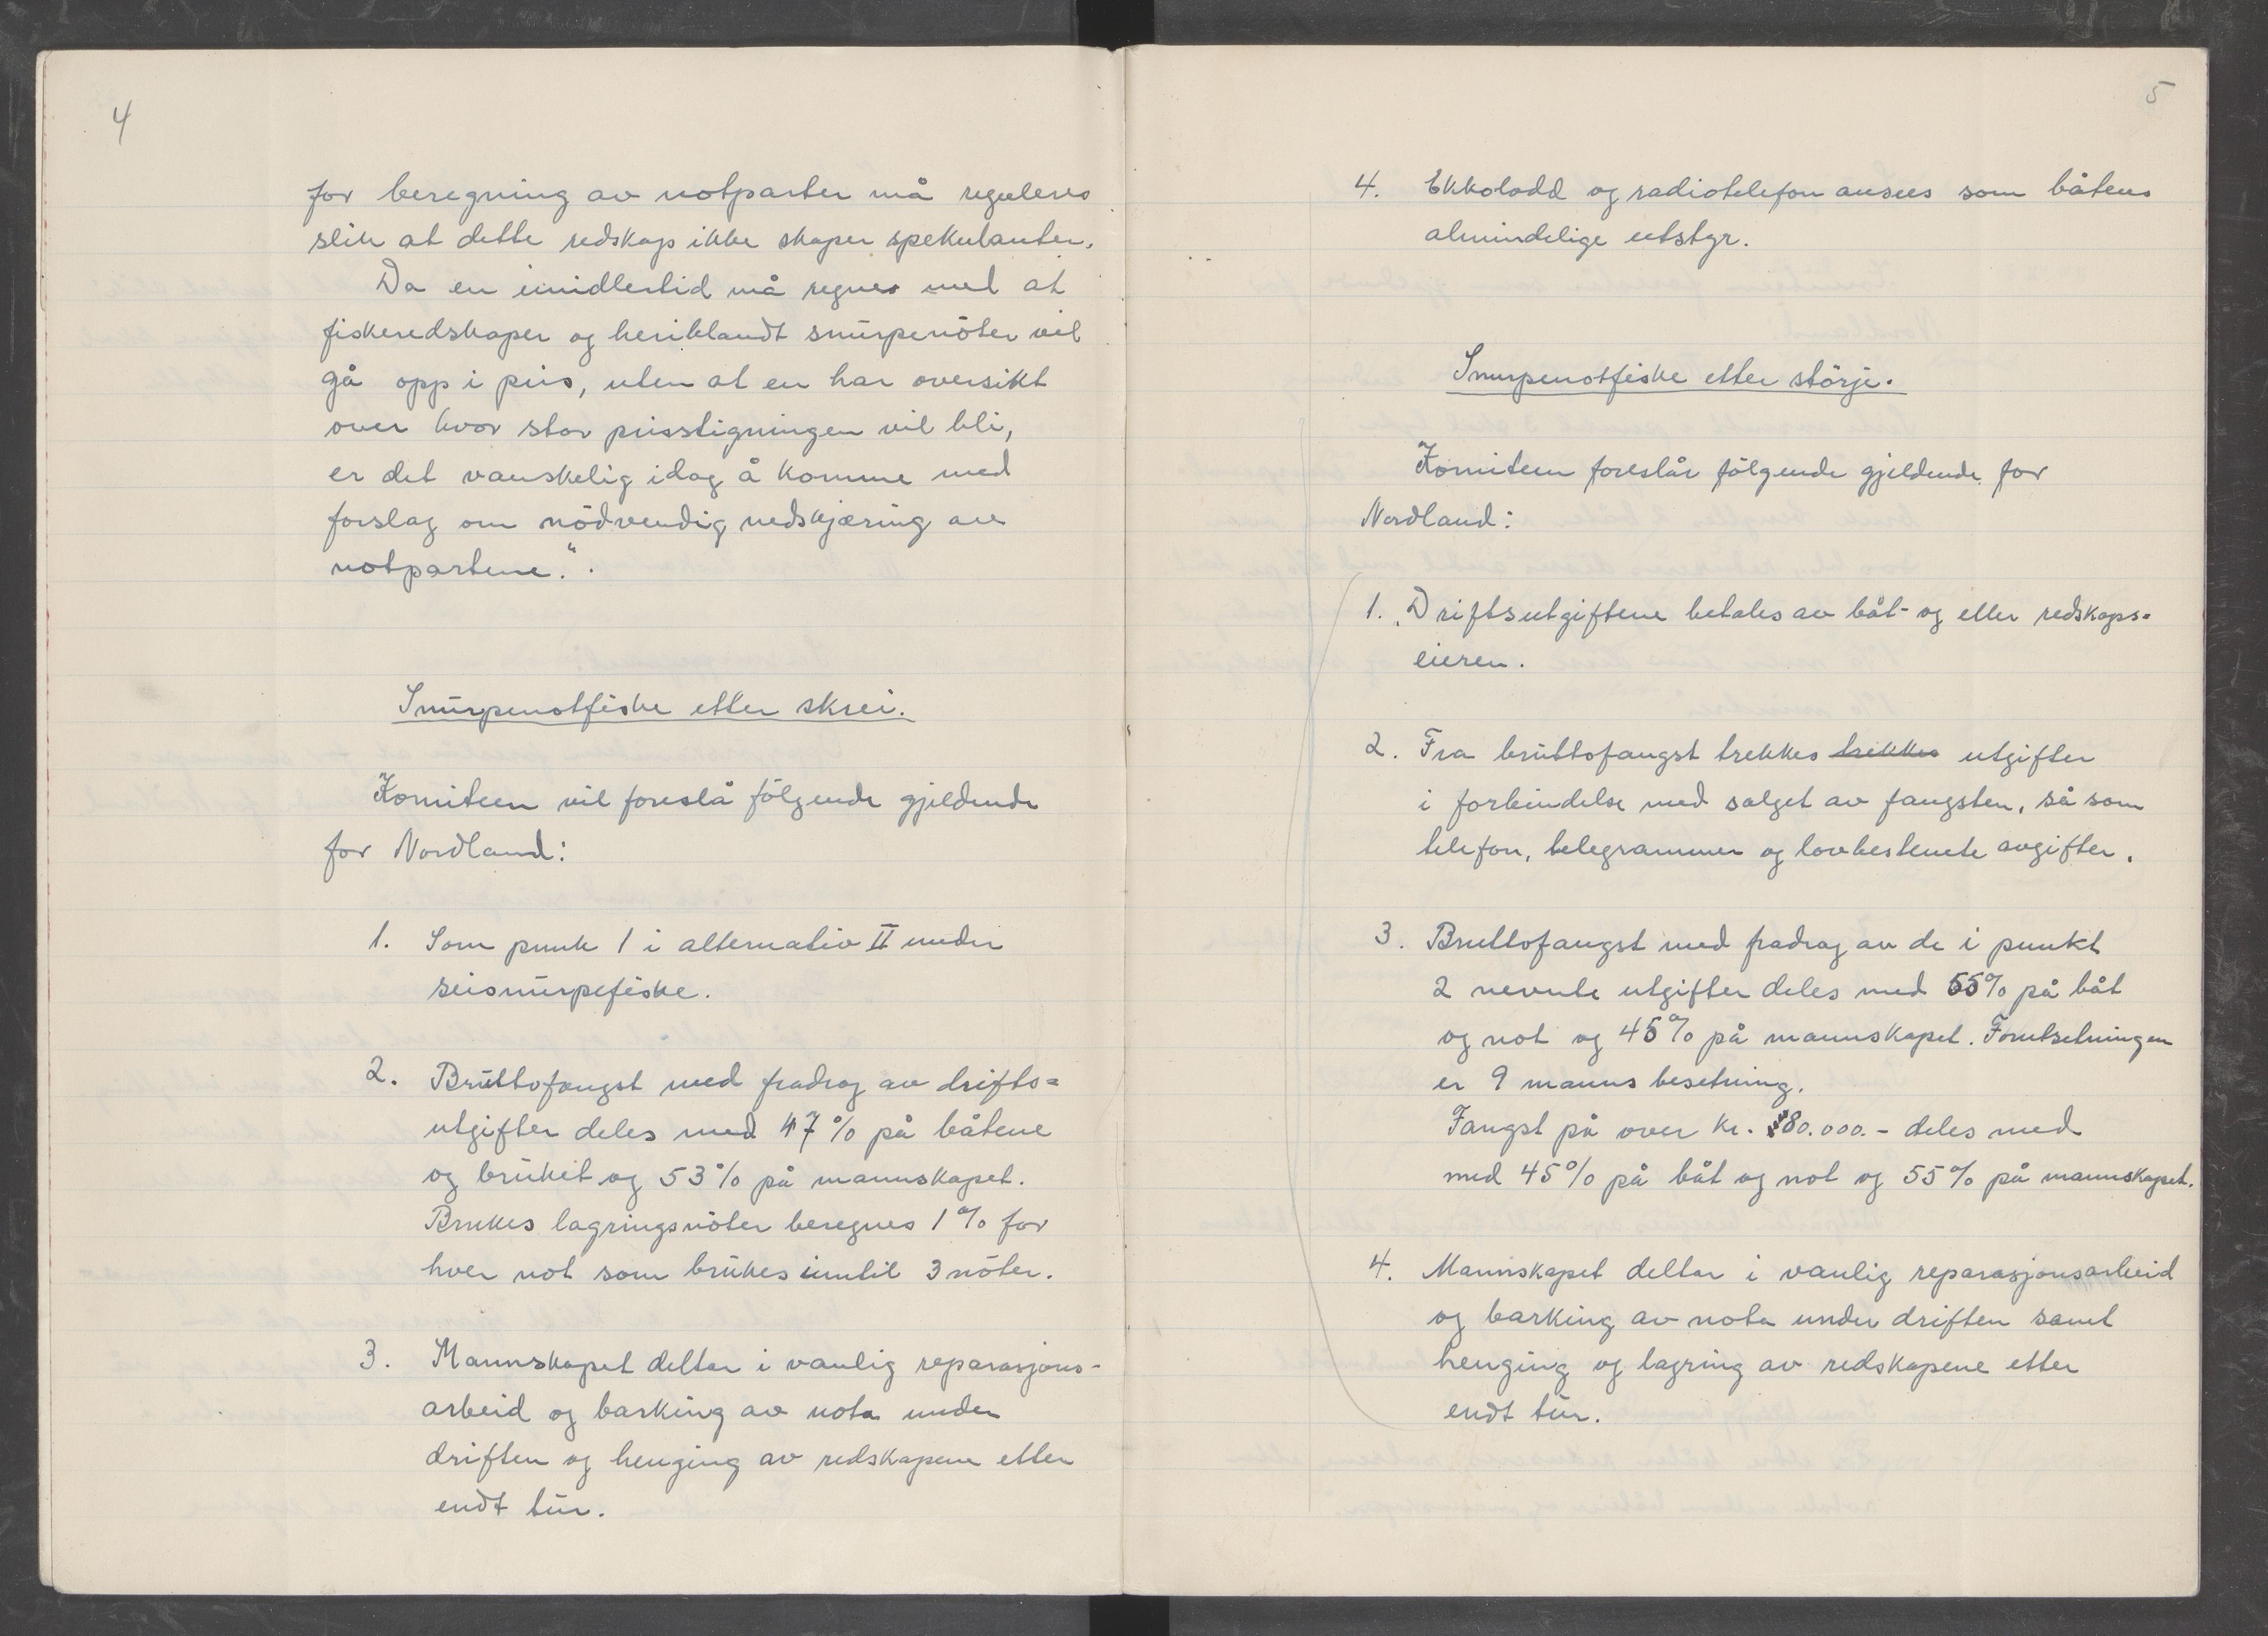 4
for beregning av notparter må reguleres
slik at dette redskap ikke skaper spekulanter.
Da en imidlertid må regnes med at
fiskeredskaper og heriblandt snurpenöter vil
gå opp i pris, uten at en har oversikt
over hvor stor prisstigningen vil bli,
er det vanskelig idag å komme med
forslag om nödvendig nedskjæring av
notpartene.".
Snurpenotfiske etter skrei.
Komiteen vil foreslå fölgende gjeldende
for Nordland:
1. Som punk 1 i alternativ II under
seisnurpefiske.
2. Bruttofangst med fradrag av drifts=
utgifter deles med 47% på båtene
og bruket og 53% på mannskapet.
Brukes lagringsnöter beregnes 1% for
hver not som brukes inntil 3 nöter.
3. Mannskapet deltar i vanlig reparasjons-
arbeid og barking av nota under
driften og henging av redskapene etter
endt tur.
5
4. Ekkolodd og radiotelefon ansees som båtens
almindelige utstyr.
Snurpenotfiske etter störje.
Komiteen foreslår fölgende gjeldende for
Nordland:
1. Driftsutgiftene betales av båt- og eller redskaps=
eieren.
2. Fra bruttofangst trekkes trekkes utgifter
i forbindelse med salget av fangsten, så som
telefon, telegrammer og lovbestemte avgifter.
3. Bruttofangst med fradrag av de i punkt
2 nevnte utgifter deles med 55% på båt
og not og 45% på mannskapet. Forutsetningen
er 9 manns besetning.
Fangst på over kr. 80.000.- deles med
med 45% på båt og not og 55% på mannskapet.
4. Mannskapet deltar i vanlig reparasjonsarbeid
og barking av nota under driften samt
henging og lagring av redskapene etter
endt tur.